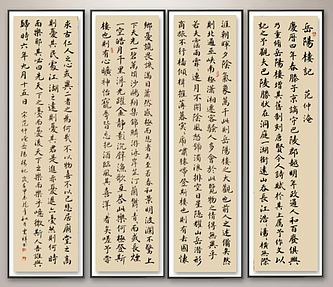 岳陽樓記 范仲淹
慶曆四年春滕子京謫守巴陵郡越明年政通人和百廢俱興
乃重修岳陽樓增其舊制刻唐賢今人詩賦於其上屬予作文以
記之予觀夫巴陵勝狀在洞庭一湖銜遠山吞長江浩浩湯湯橫無際
涯朝暉夕陰氣象萬千此則岳陽樓之大觀也前人之述備矣然
則北通巫峽南極瀟湘遷客騷人多會於此覽物之情得無異乎
若夫霪雨霏霏連月不開陰風怒號濁浪排空日星隱耀山岳潛形
商旅不行檣傾楫摧薄暮冥冥虎嘯猿啼登斯樓也則有去國懷
鄉憂讒畏譏滿目蕭然感極而悲者矣至若春和景明波瀾不驚上
下天光一碧萬頃沙鷗翔集錦鱗游泳岸芷汀蘭郁郁青青而或長煙
一空皓月千里浮光躍金靜影沉璧漁歌互答此樂何極登斯
樓也則有心曠神怡寵辱皆忘把酒臨風其喜洋洋者矣嗟夫予嘗
求古仁人之心或異二者之為何哉不以物喜不以己悲居廟堂之高
則憂其民處江湖之遠則憂其君是進亦憂退亦憂然則何時
而樂耶其必曰先天下之憂而憂後天下之樂而樂乎噫微斯人吾誰與
歸時六年九月十五日